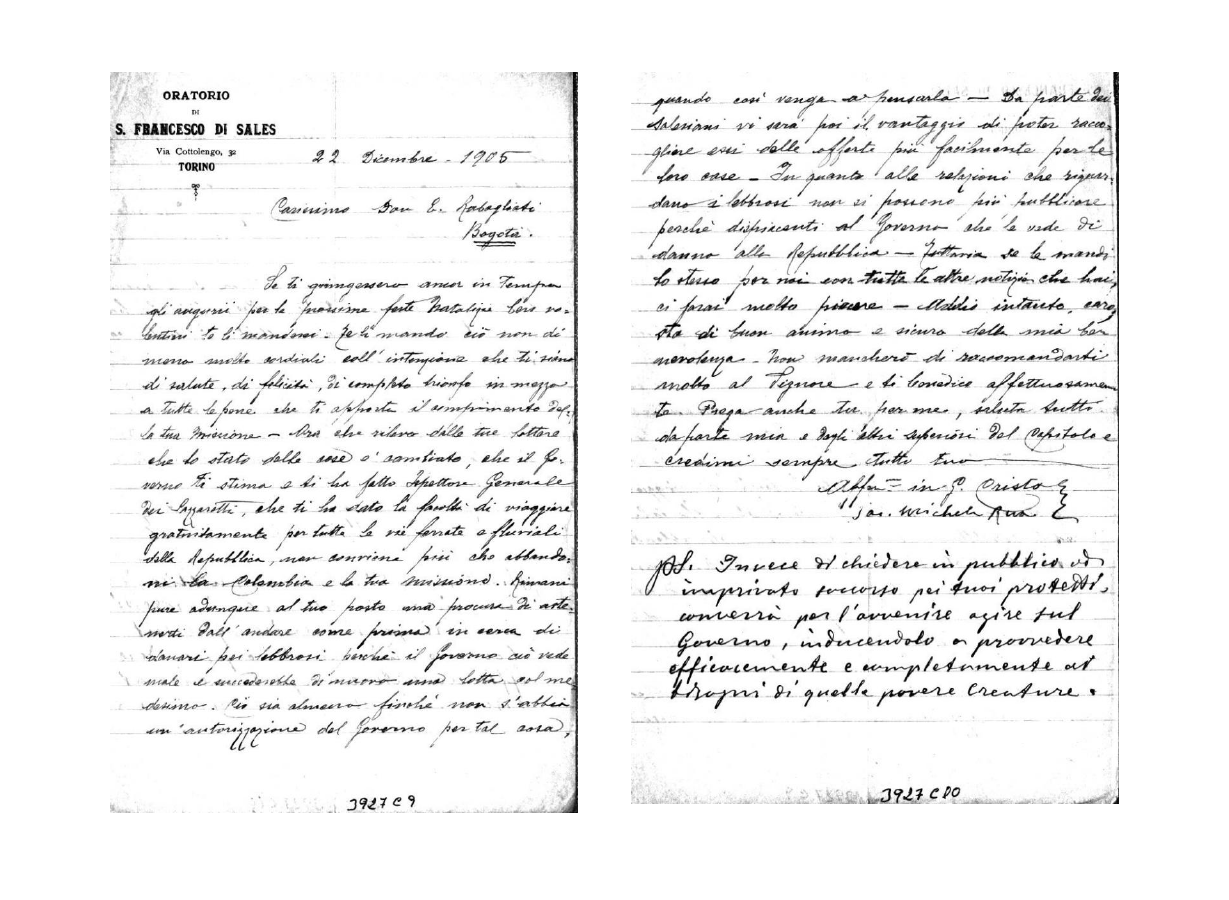 ORATORIO
DI
S. FRANCESCO DI SALES
Via Cottolengo, 32
TORINO
22 Dicembre - 1905
Carissimo Don E. Rabagliati
Bogotà.
Se ti giungessero ancor in tempo
gli augurii per le prossime feste Natalizie ben vo-
lentieri te li manderei. Te li mando ciò non di
meno molto cordiali coll'intenzione che ti siano
di salute, di felicità, di completo trionfo in mezzo
a tutte le pene che ti apporta il compimento del-
la tua missione - Ora che rilevo dalle tue lettere
che lo stato delle cose è cambiato, che il Go-
verno ti stima e ti ha fatto Ispettore Generale
dei Lazzaretti, che ti ha dato la facoltà di viaggiare
gratuitamente per tutte le vie ferrate e fluviali
della Repubblica, non conviene più che abbando-
ni la Colombia e la tua missione. Rimani
pure adunque al tuo posto ma procura di aste-
nerti dall'andare come prima in cerca di
danari pei lebbrosi perchè il Governo ciò vede
male e succederebbe di nuovo una lotta col me
desimo. Ciò sia almeno finchè non s'abbia
un'autorizzazione del Governo per tal cosa,
3927 C 9
quando così venga a pensarla - Da parte dei
Salesiani vi sarà poi il vantaggio di poter racco-
gliere essi delle offerte più facilmente per le
loro case - In quanto alle relazioni che riguar-
dano i lebbrosi non si possono più pubblicare
perchè dispiacenti al Governo che le vede di
danno alla Repubblica - Tuttavia se le mandi
lo stesso per noi con tutte le altre notizie che hai,
ci farai molto piacere - Addio intanto, caro,
sta di buon animo e sicuro della mia be
nevolenza - Non mancherò di raccomandarti
molto al Signore e ti benedico affettuosamen
te. Prega anche tu per me, saluta tutti
da parte mia e degli altri superiori del Capitolo e
credimi sempre tutto tuo
Affmo in G. Cristo
Sac. Michele Rua
PS. Invece di chiedere in pubblico od
in privato soccorso pei tuoi protetti,
converrà per l'avvenire agire sul
Governo, inducendolo a provvedere
efficacemente e completamente ai
bisogni di quelle povere Creature.
3927 C 10